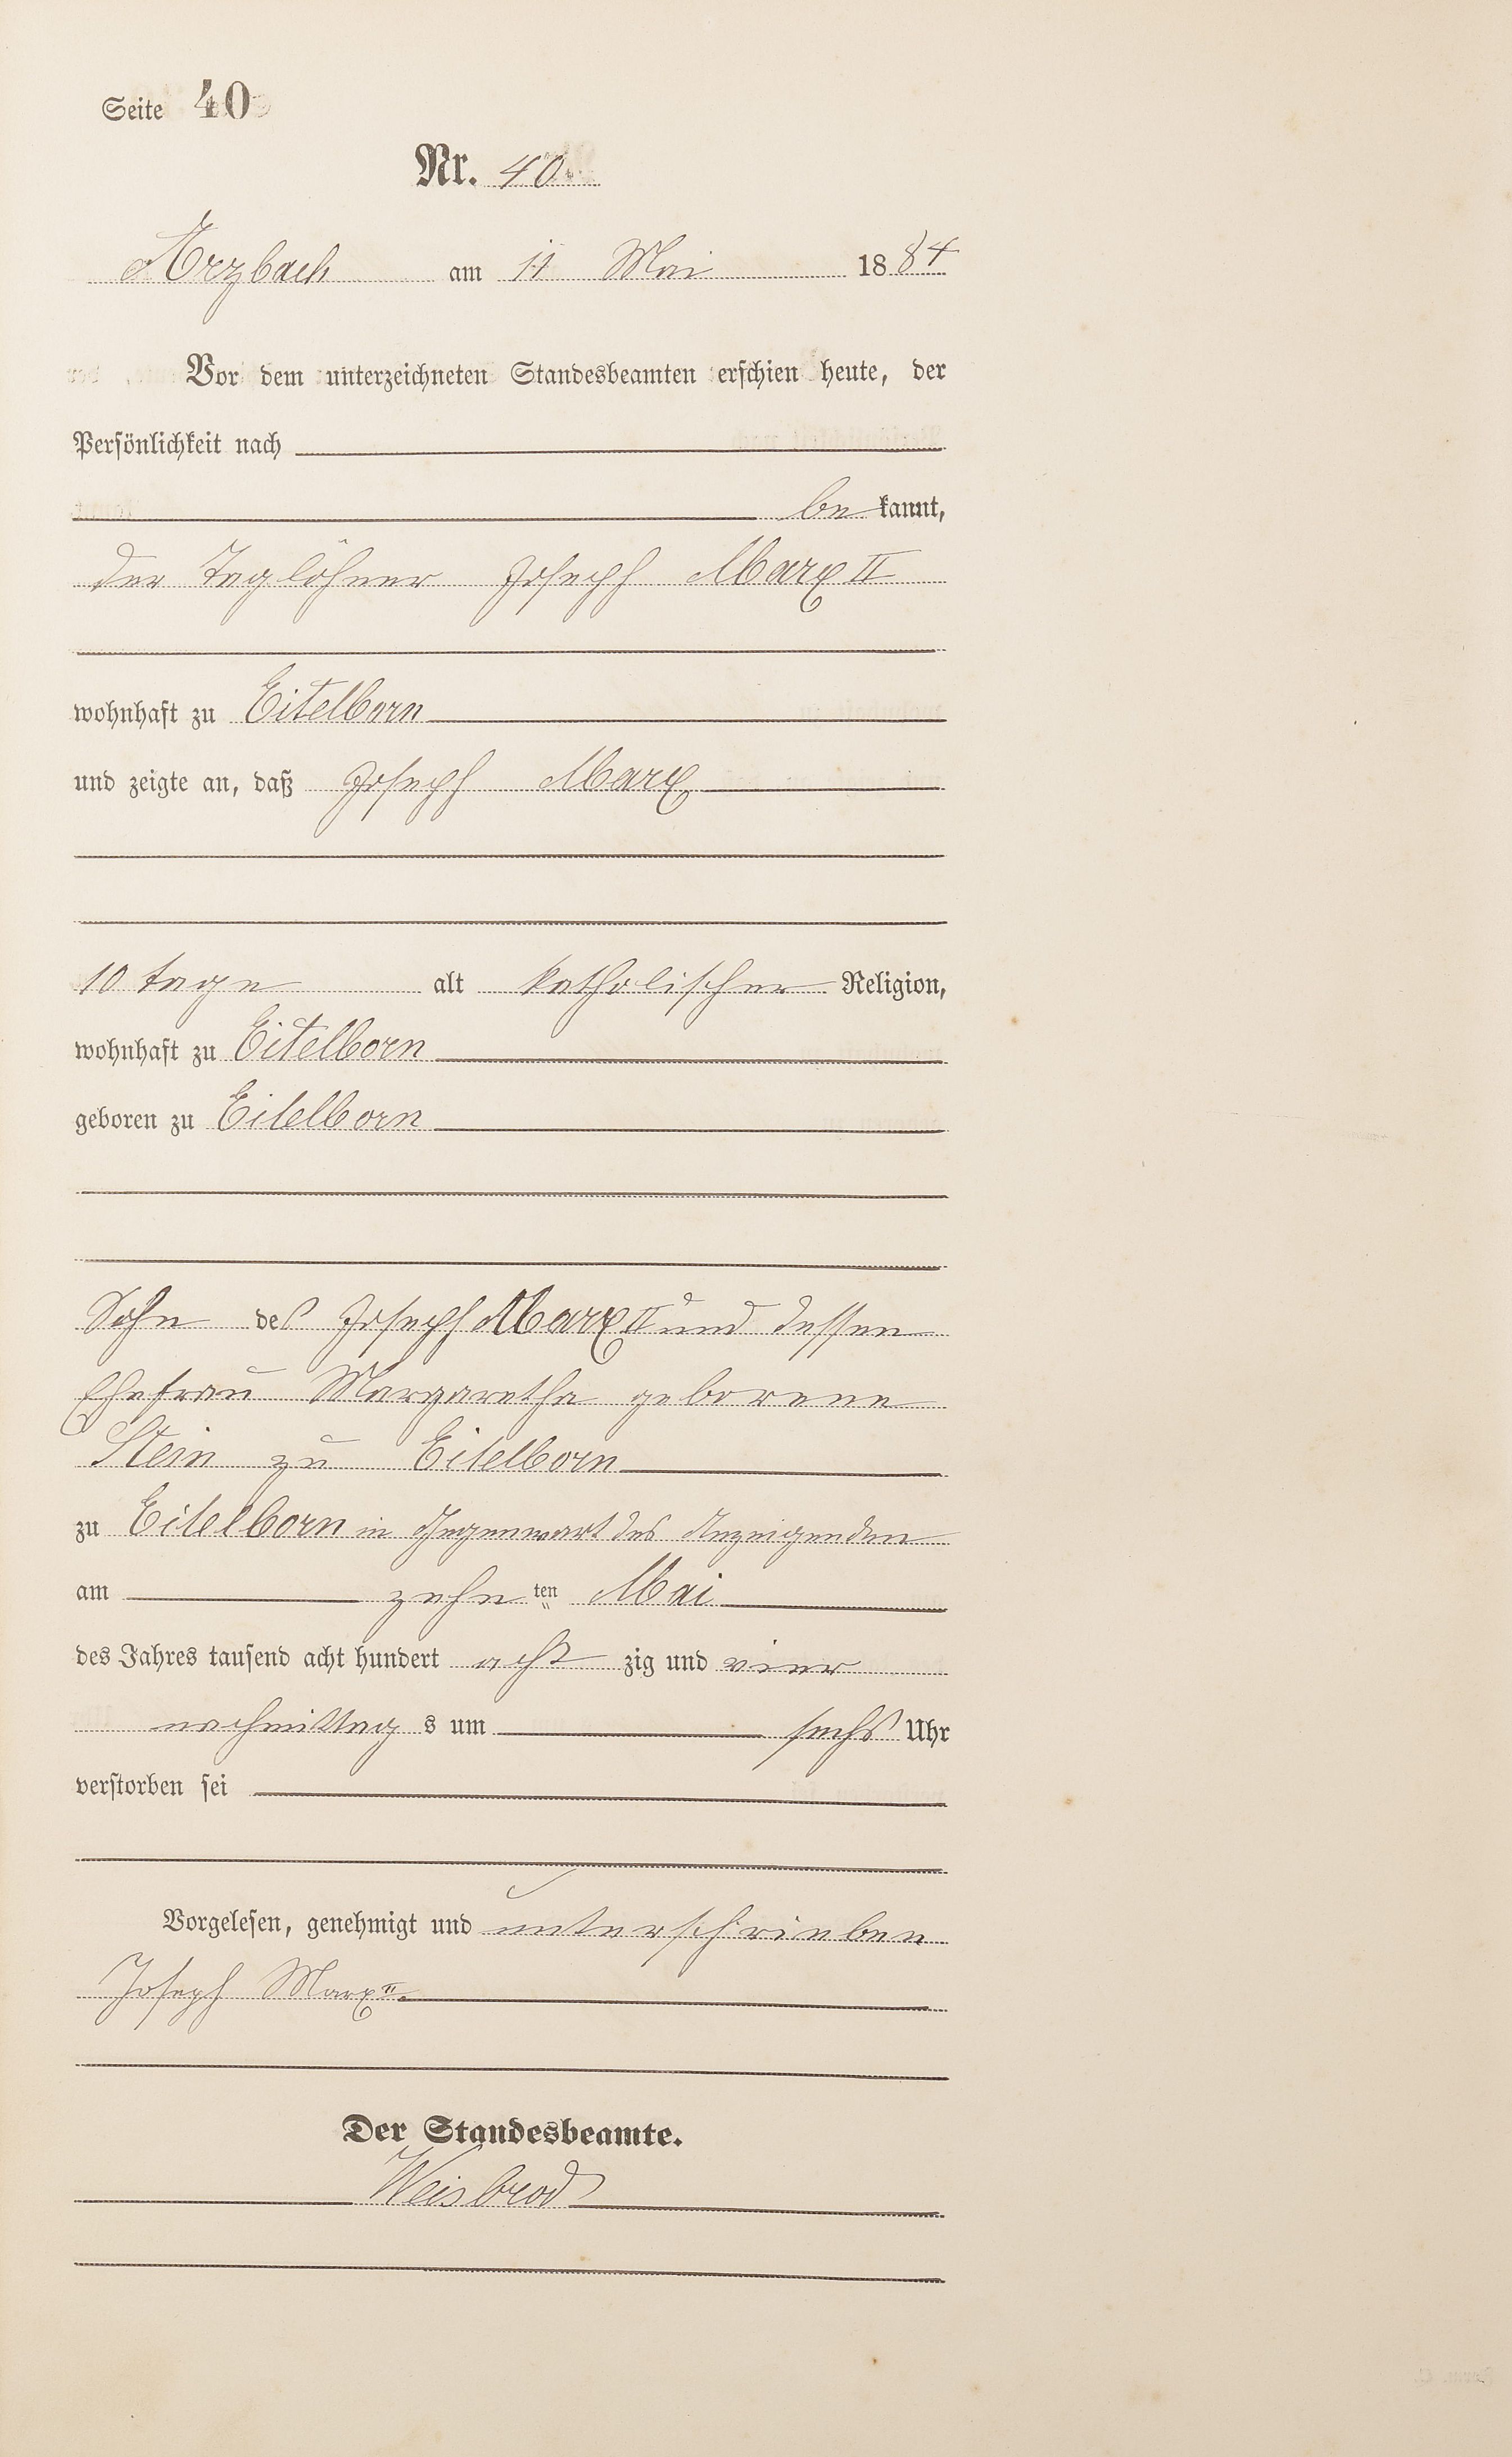 Seite 40
Nr. 40
Arzbach am 11 Mai 1884
Vor dem unterzeichneten Standesbeamten erschien heute, der
Persönlichkeit nach
be kannt,
der Taglöhner Joseph Marx II
wohnhaft zu Eitelborn
und zeigte an, daß Joseph Marx
10 tage alt katholischer Religion,
wohnhaft zu Eitelborn
geboren zu Eitelborn
Sohn des Joseph Marx II und dessen
Ehefrau Margaretha geborene
Stein zu Eitelborn
zu Eitelborn in Gegenwart des Anzeigenden
am zehn ten Mai
des Jahres tausend acht hundert acht zig und vier
nachmittag s um sechs Uhr
verstorben sei
Vorgelesen, genehmigt und unterschrieben
Joseph Marx II.
Der Standesbeamte.
Weisbrod